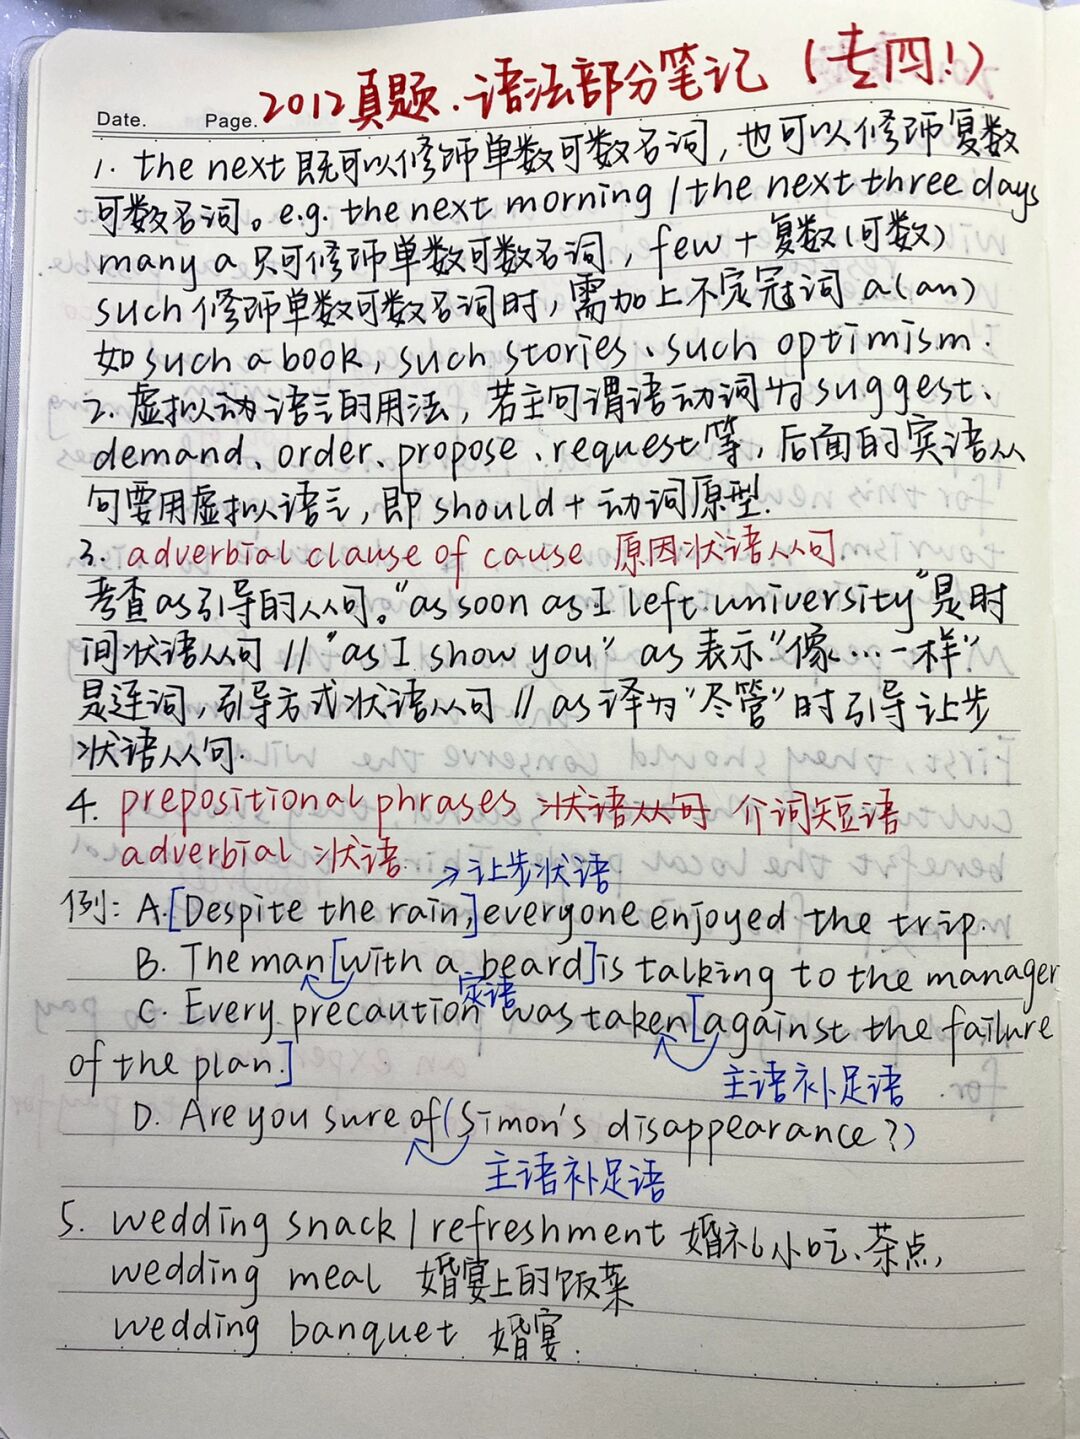 2012真题.语法部分笔记(专四!)
Date. Page.
1. the next 既可以修饰单数可数名词,也可以修饰复数
可数名词。e.g. the next morning / the next three days
many a 只可修饰单数可数名词, few + 复数(可数)
such 修饰单数可数名词时,需加上不定冠词 a(an)
如 such a book, such stories、such optimism.
2. 虚拟动语气的用法,若主句谓语动词为suggest、
demand、order、propose、request等,后面的宾语从
句要用虚拟语气,即 should + 动词原型.
3. adverbial clause of cause 原因状语从句
考查as引导的从句。"as soon as I left university"是时
间状语从句 // "as I show you" as 表示"像…一样"
是连词,引导方式状语从句 // as 译为"尽管"时引导让步
状语从句.
4. prepositional phrases 状语从句 介词短语
adverbial 状语.
→让步状语
例: A.[Despite the rain,]everyone enjoyed the trip.
B. The man[with a beard]is talking to the manager
定语
C. Every precaution was taken[against the failure
of the plan.]
主语补足语
D. Are you sure of(Simon's disappearance?)
主语补足语
5. wedding snack / refreshment 婚礼小吃、茶点,
wedding meal 婚宴上的饭菜
wedding banquet 婚宴.